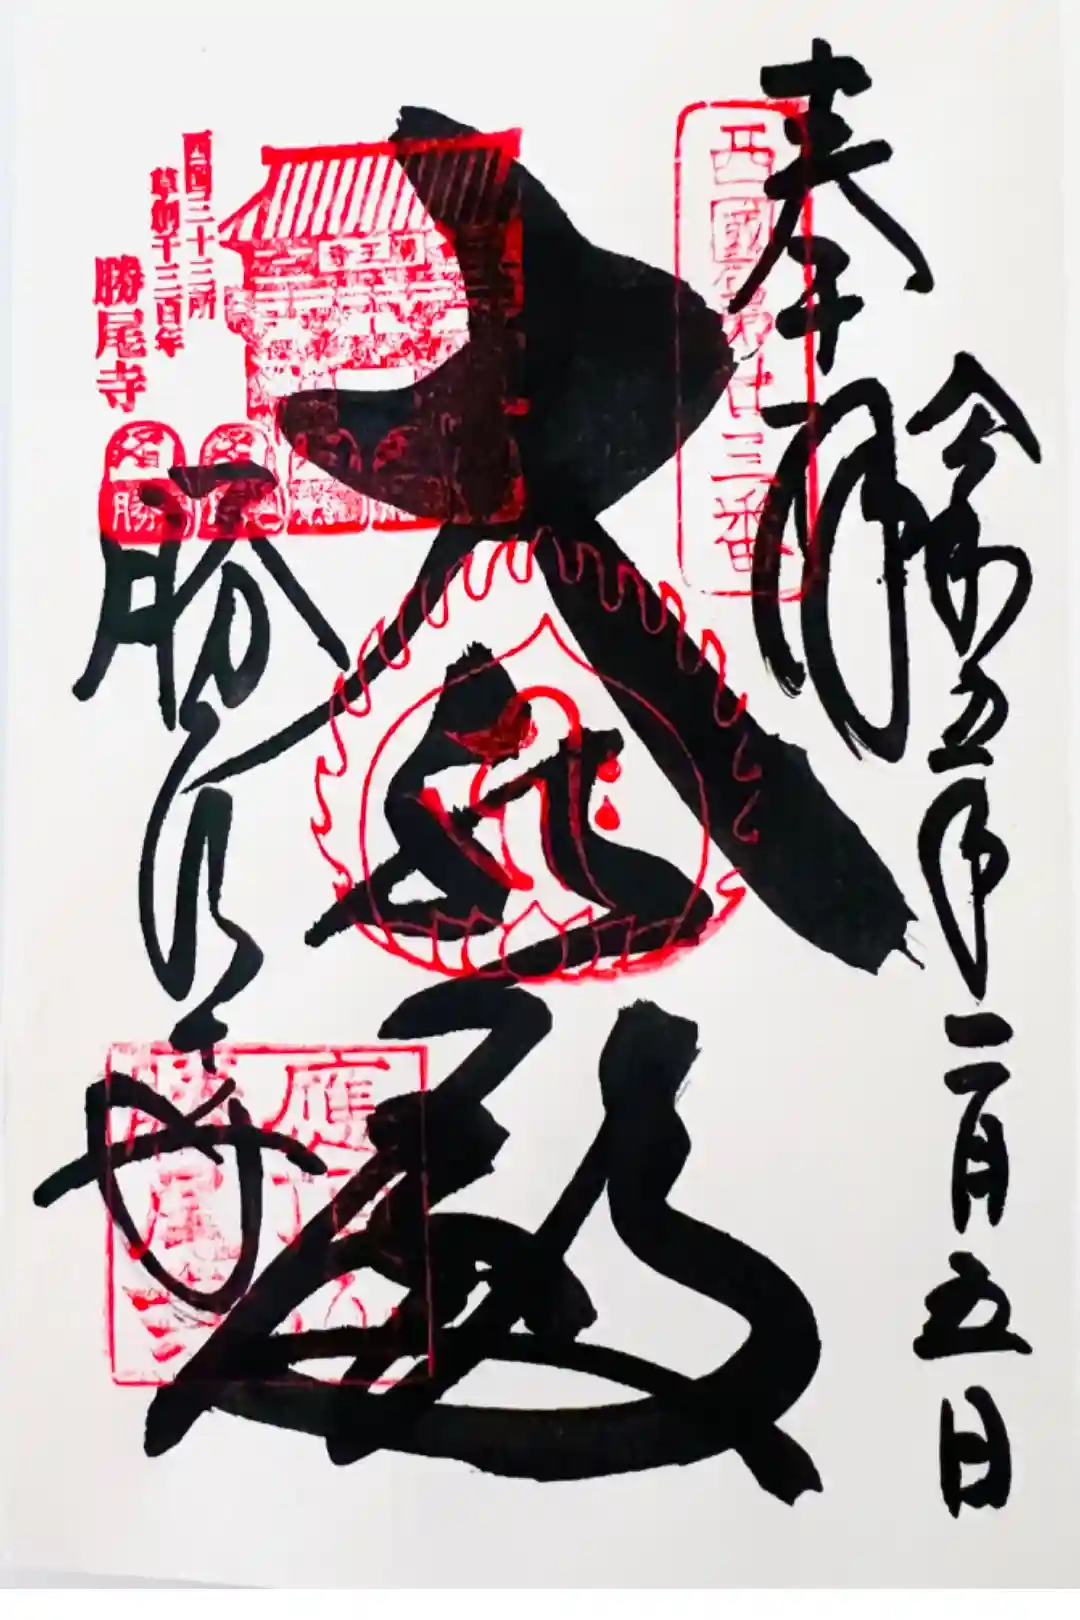 奉拝
令和五年二月五日
西國第廿三番
大悲殿
西国三十三所
草創千三百年
勝尾寺
勝尾寺